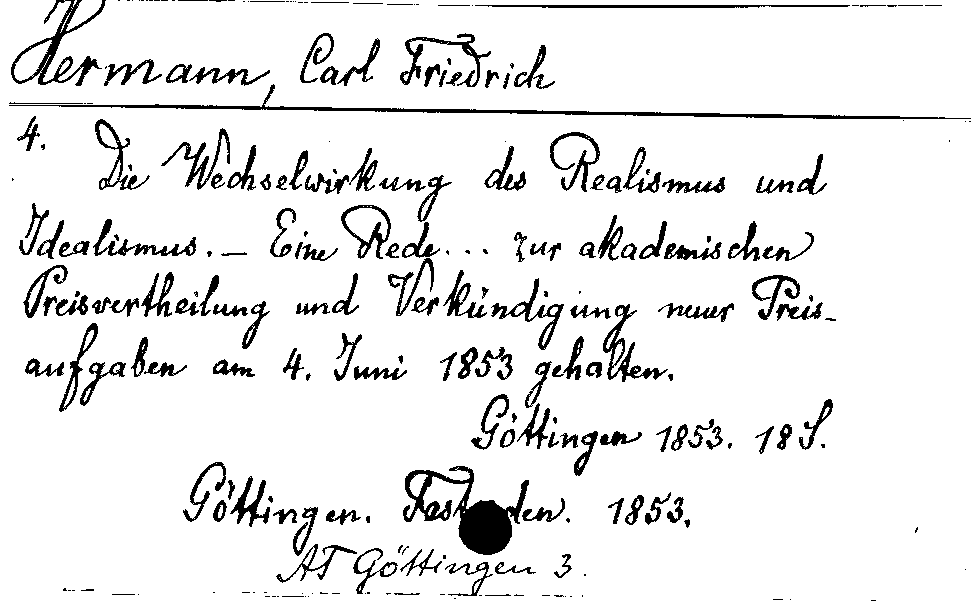 Hermann, Carl Friedrich
4.
Die Wechselwirkung des Realismus und
Idealismus. — Eine Rede... zur akademischen
Preisvertheilung und Verkündigung neuer Preis-
aufgaben am 4. Juni 1853 gehalten.
Göttingen 1853. 18 S.
Göttingen. Festreden. 1853.
AT Göttingen 3.